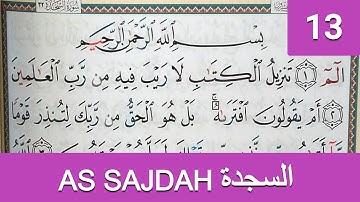 13
بِسْمِ اللَّهِ الرَّحْمَٰنِ الرَّحِيمِ
الٓمٓ ١ تَنزِيلُ الْكِتَٰبِ لَا رَيْبَ فِيهِ مِن رَّبِّ الْعَٰلَمِينَ
٢ أَمْ يَقُولُونَ افْتَرَىٰهُ ۚ بَلْ هُوَ الْحَقُّ مِن رَّبِّكَ لِتُنذِرَ قَوْمًا
AS SAJDAH السجدة